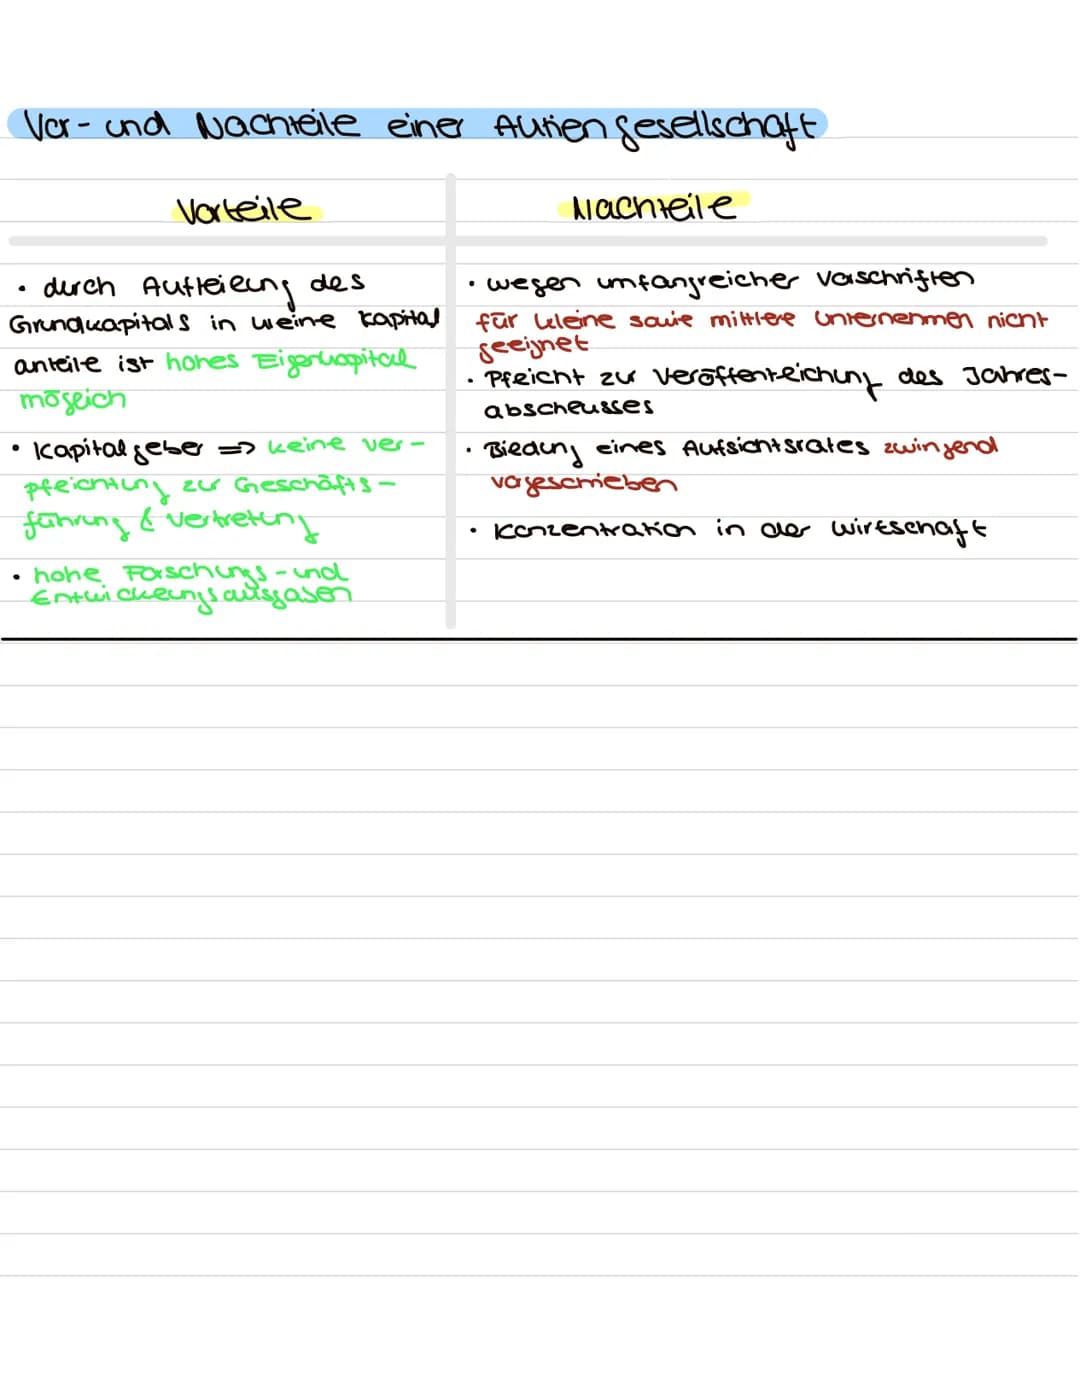 Vor- und Nachteile einer Aktiengesellschaft
Vorteile
• durch Aufteilung des
Grundkapitals in kleine Kapital
anteile ist hohes Eigenkapital
möglich
• Kapitalgeber => keine ver-
pflichtung zur Geschäfts-
führung & vertretung
• hohe Forschungs- und
Entwicklungsausgaben
Nachteile
• wegen umfangreicher Vorschriften
für kleine sowie mittlere Unternehmen nicht
geeignet
• Pflicht zur Veröffentlichung des Jahres-
abschlusses
• Bildung eines Aufsichtsrates zwingend
vorgeschrieben
• Konzentration in der Wirtschaft